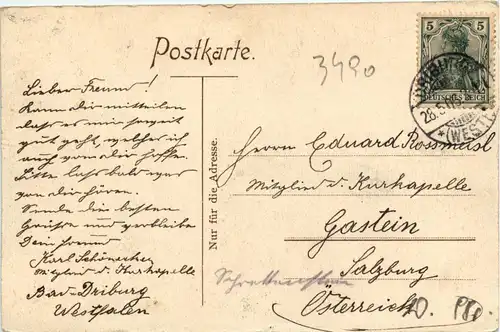 Postkarte.
3490
Lieber Freund!
Kann dir mitteilen
dass es mir soweit
gut geht, welches ich
auch von dir hoffe.
Bitte lass bald was
von dir hören.
Sende die besten
Grüsse und verbleibe
Dein Freund
Karl
Mitglied d. Kurkapelle
Bad-Driburg
Westfalen
Nur für die Adresse.
5
DEUTSCHES REICH
DRIBURG
(WESTF.)
Herrn Eduard Rossmäsl
Mitglied d. Kurkapelle
Gastein
Salzburg
Österreich